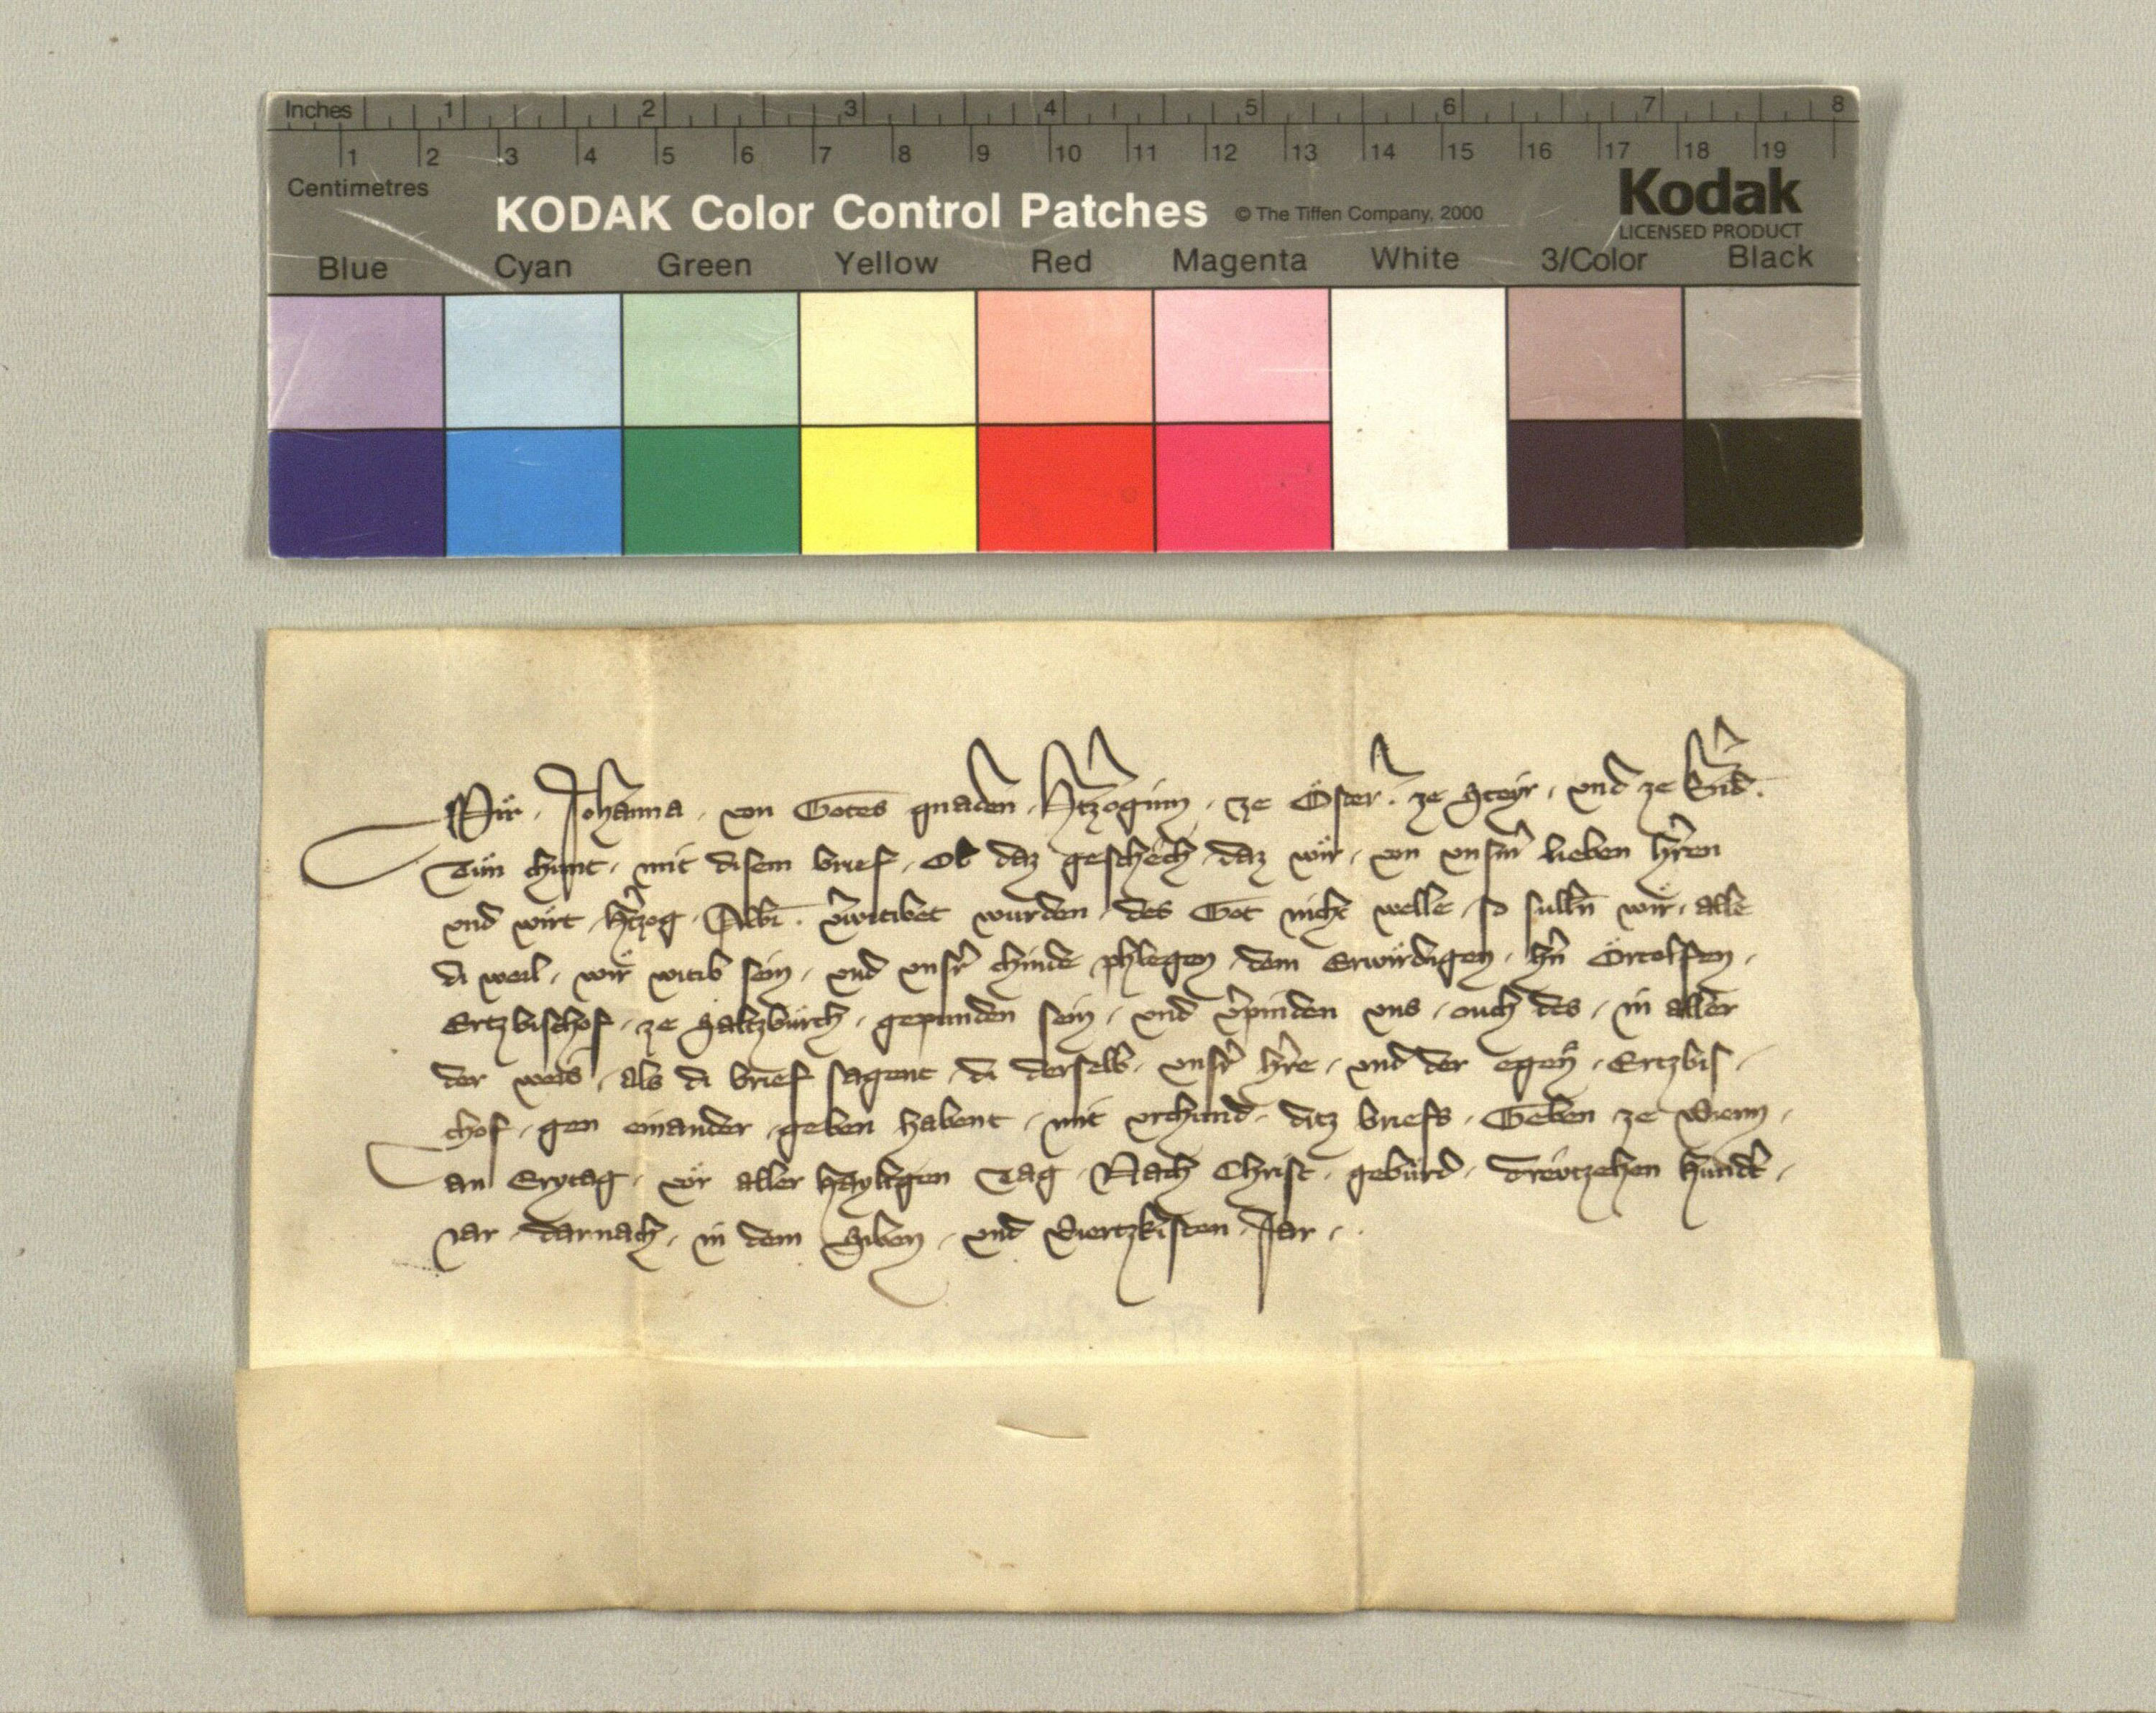 Inches 1 2 3 4 5 6 7 8
1 2 3 4 5 6 7 8 9 10 11 12 13 14 15 16 17 18 19
Centimetres
KODAK Color Control Patches © The Tiffen Company, 2000 Kodak
LICENSED PRODUCT
Blue Cyan Green Yellow Red Magenta White 3/Color Black
Wir . Johanna . von Gotes gnaden . H̄tzoginn . ze Öster̄ . ze Steyr . vnd ze
Tůn chunt . mit disem brief . Ob daz geschech . daz wir . von vnsm̄ lieben hr̄en
vnd wirt . H̄tzog . Alb̄ . v̄witibet wurden . des Got nicht welle . so sulln̄ wir . alle
di weil . wir witib sein . vnd vnsr̄ chinde phlegen . dem Erwirdigen . hn̄ Örtolfen .
Ertzbischof . ze Saltzburch . gepunden sein . vnd v̄pinden vns . ouch des . in aller
der weis . als di brief sagent . di derselb . vnsr̄ hr̄re . vnd der egen̄ . Ertzbis .
chof . gen einander . geben habent . mit vrchund . ditz briefs . Geben ze Wienn .
an Erytag . vor aller Hayligen Tag . Nach Christ . gebürd . Dreutzehen Hundt̄ .
iar . darnach . in dem Siben . vnd Viertzkisten . Jar .